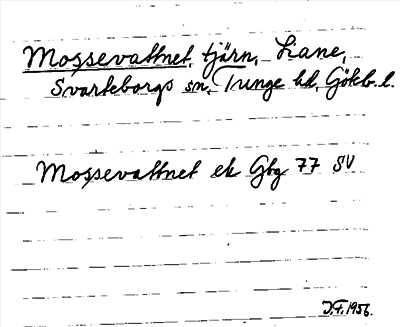 Mossevattnet, tjärn, Lane,
Svarteborgs sn, Tunge hd, Göteb. l.
Mossevattnet ek Gbg 77 SV
J.F. 1956.